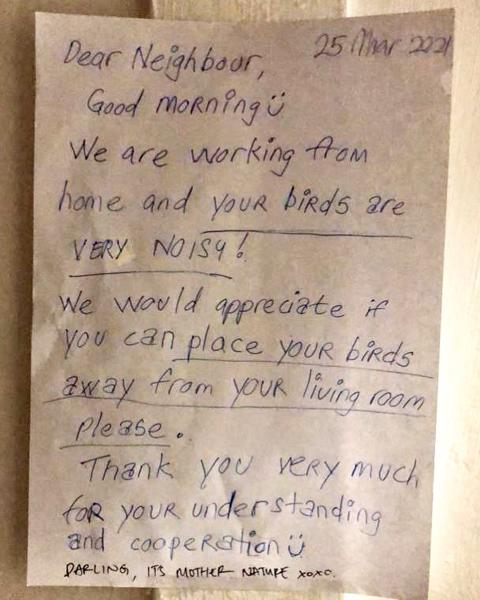 25 Mar 2021
Dear Neighbour,
Good morning ü
We are working from
home and your birds are
VERY NOISY!
We would appreciate if
you can place your birds
away from your living room
please.
Thank you very much
for your understanding
and cooperation ü
DARLING, ITS MOTHER NATURE xoxo.